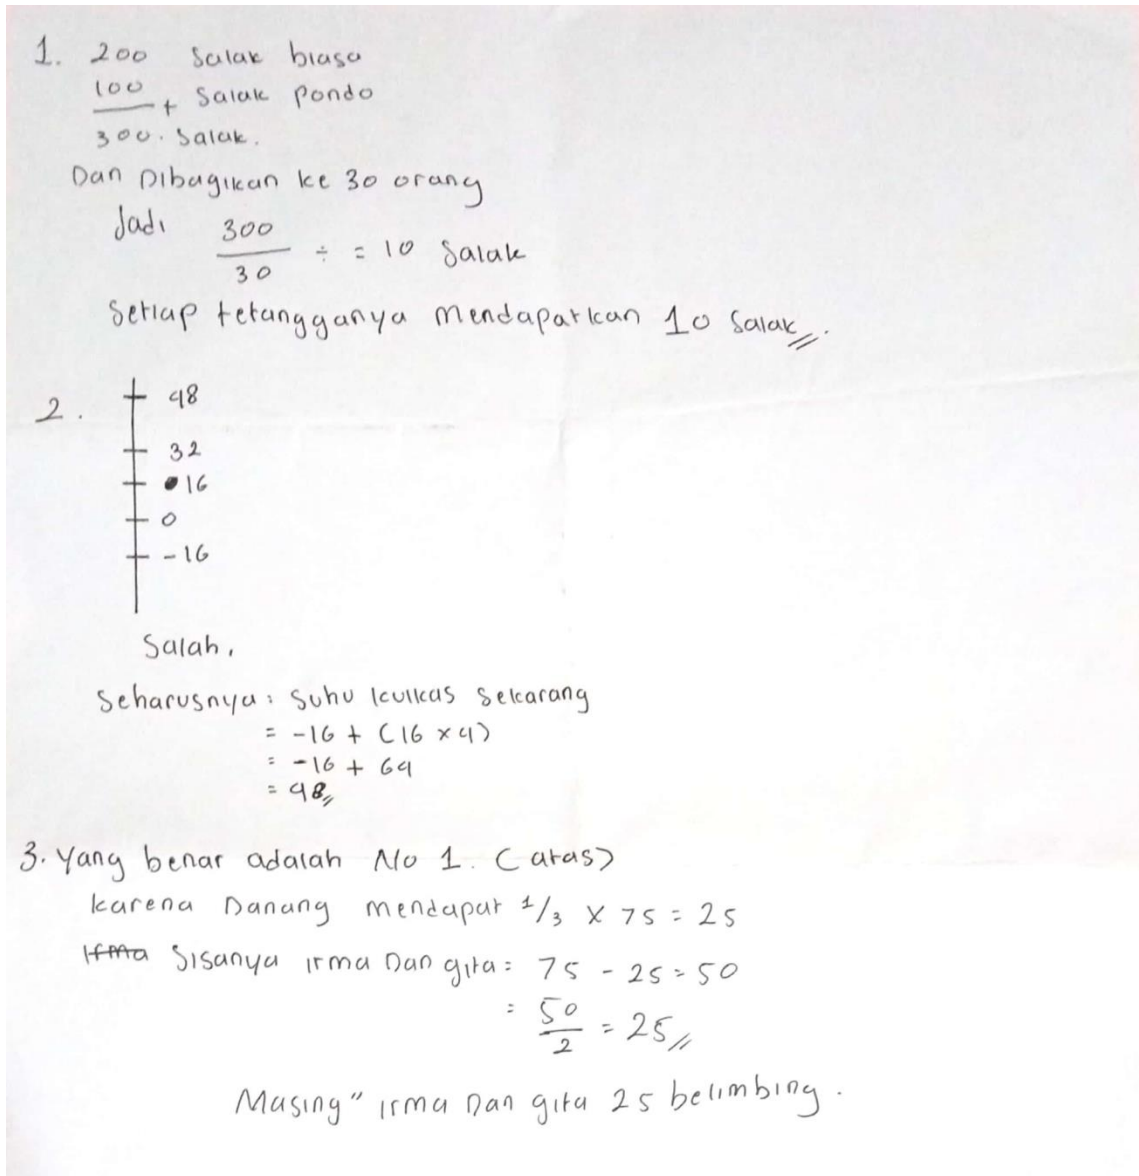 1. 200 Salak biasa
100 + Salak Pondo
300. Salak.
Dan Dibagikan ke 30 orang
Jadi 300/30 ÷ = 10 Salak
Setiap tetangganya mendapatkan 10 Salak //.
2. 48
32
16
0
-16
Salah.
Seharusnya : Suhu kulkas Sekarang
= -16 + (16 x 4)
= -16 + 64
= 48 //
3. Yang benar adalah No 1. (atas)
karena Danang mendapat 1/3 X 75 = 25
Irma Sisanya irma Dan gita = 75 - 25 = 50
= 50/2 = 25 //
Masing" irma Dan gita 25 belimbing.